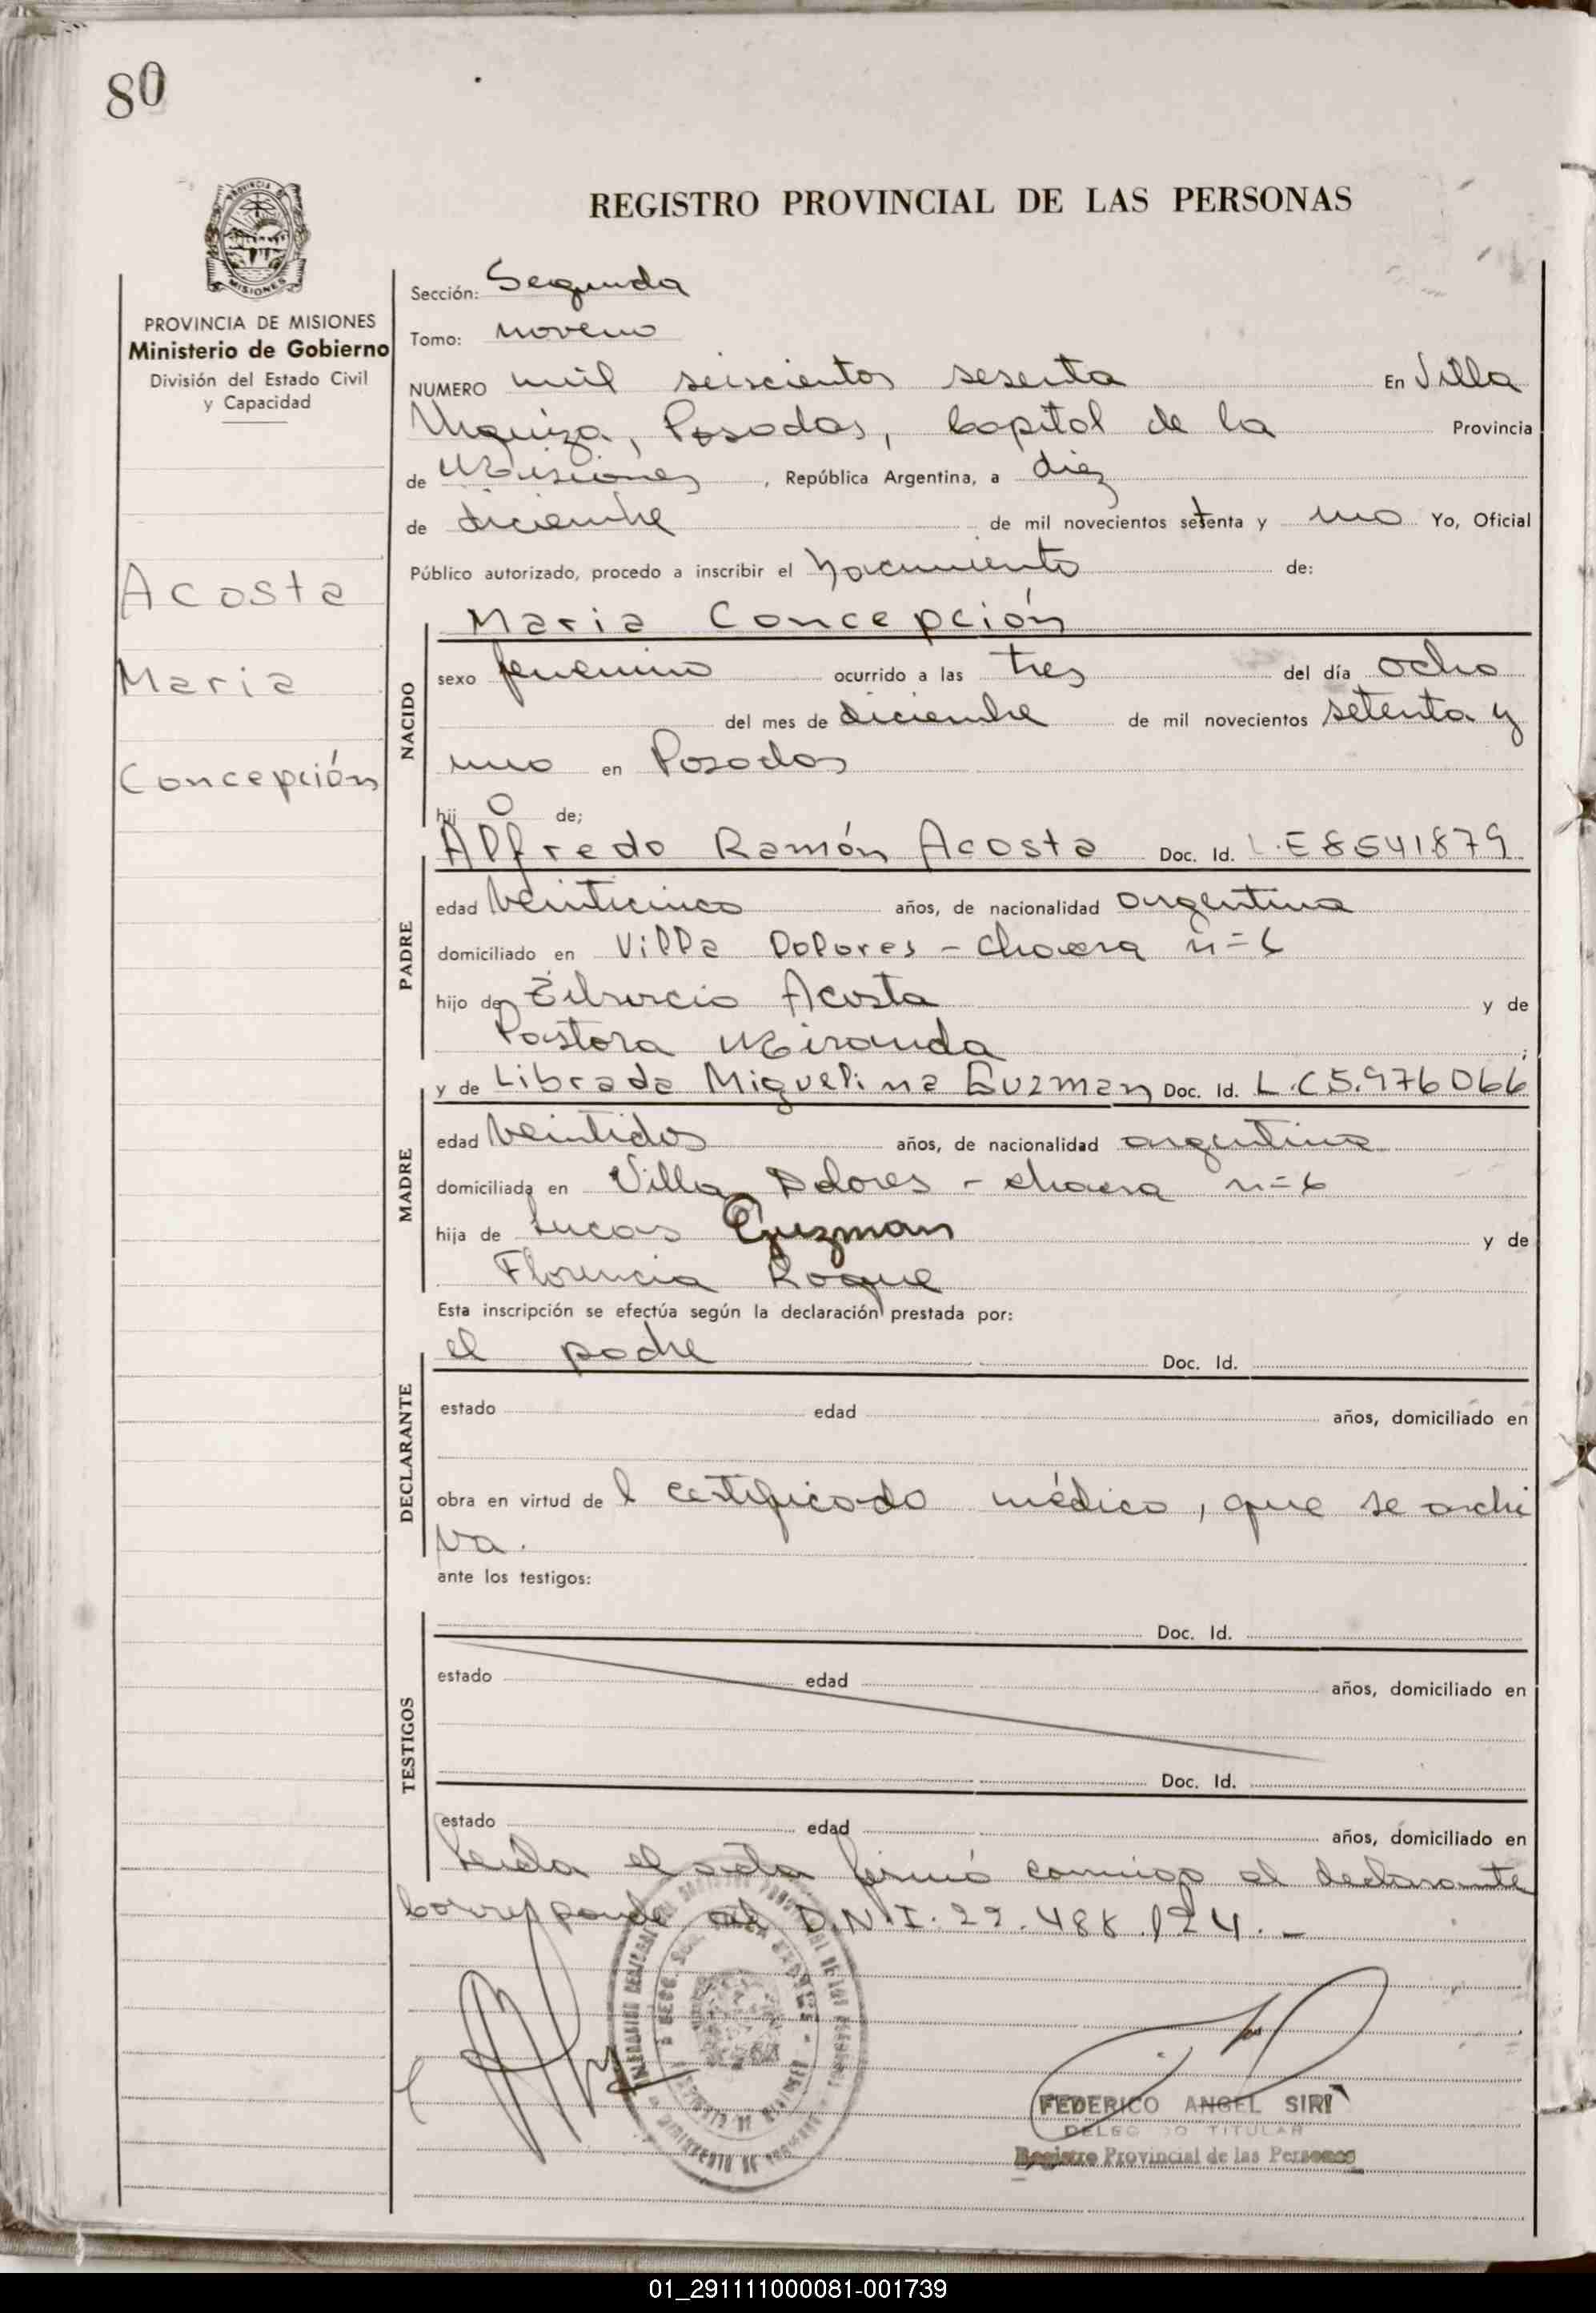 80
REGISTRO PROVINCIAL DE LAS PERSONAS
PROVINCIA DE MISIONES
Ministerio de Gobierno
División del Estado Civil
y Capacidad
Acosta
Maria
Concepción
Sección: Segunda
Tomo: noveno
NUMERO mil seiscientos sesenta En Villa
Urquiza, Posadas, Capital de la Provincia
de Misiones, República Argentina, a diez
de diciembre de mil novecientos setenta y uno Yo, Oficial
Público autorizado, procedo a inscribir el Nacimiento de:
NACIDO
Maria Concepción
sexo femenino ocurrido a las tres del día ocho
del mes de diciembre de mil novecientos setenta y
uno en Posadas
hij o de;
PADRE
Alfredo Ramón Acosta Doc. Id. L.E 8541879
edad veinticinco años, de nacionalidad argentina
domiciliado en Villa Dolores - chacra n=6
hijo de Acosta y de
Pastora Miranda ;
MADRE
y de Librada Miguelina Guzman Doc. Id. L.C 5.976066
edad veintidos años, de nacionalidad argentina
domiciliada en Villa Dolores - chacra n=6
hija de Lucas Guzman y de
Florencia Roque
Esta inscripción se efectúa según la declaración prestada por:
DECLARANTE
el padre Doc. Id.
estado edad años, domiciliado en
obra en virtud de l certificado médico, que se archi
va.
ante los testigos:
TESTIGOS
Doc. Id.
estado edad años, domiciliado en
Doc. Id.
estado edad años, domiciliado en
Leida el acta firmó conmigo el declarante
Corresponde al D.N.I. 22.488.124. -
FEDERICO ANGEL SIRI
DELEG DO TITULAR
Registro Provincial de las Personas
01_291111000081-001739